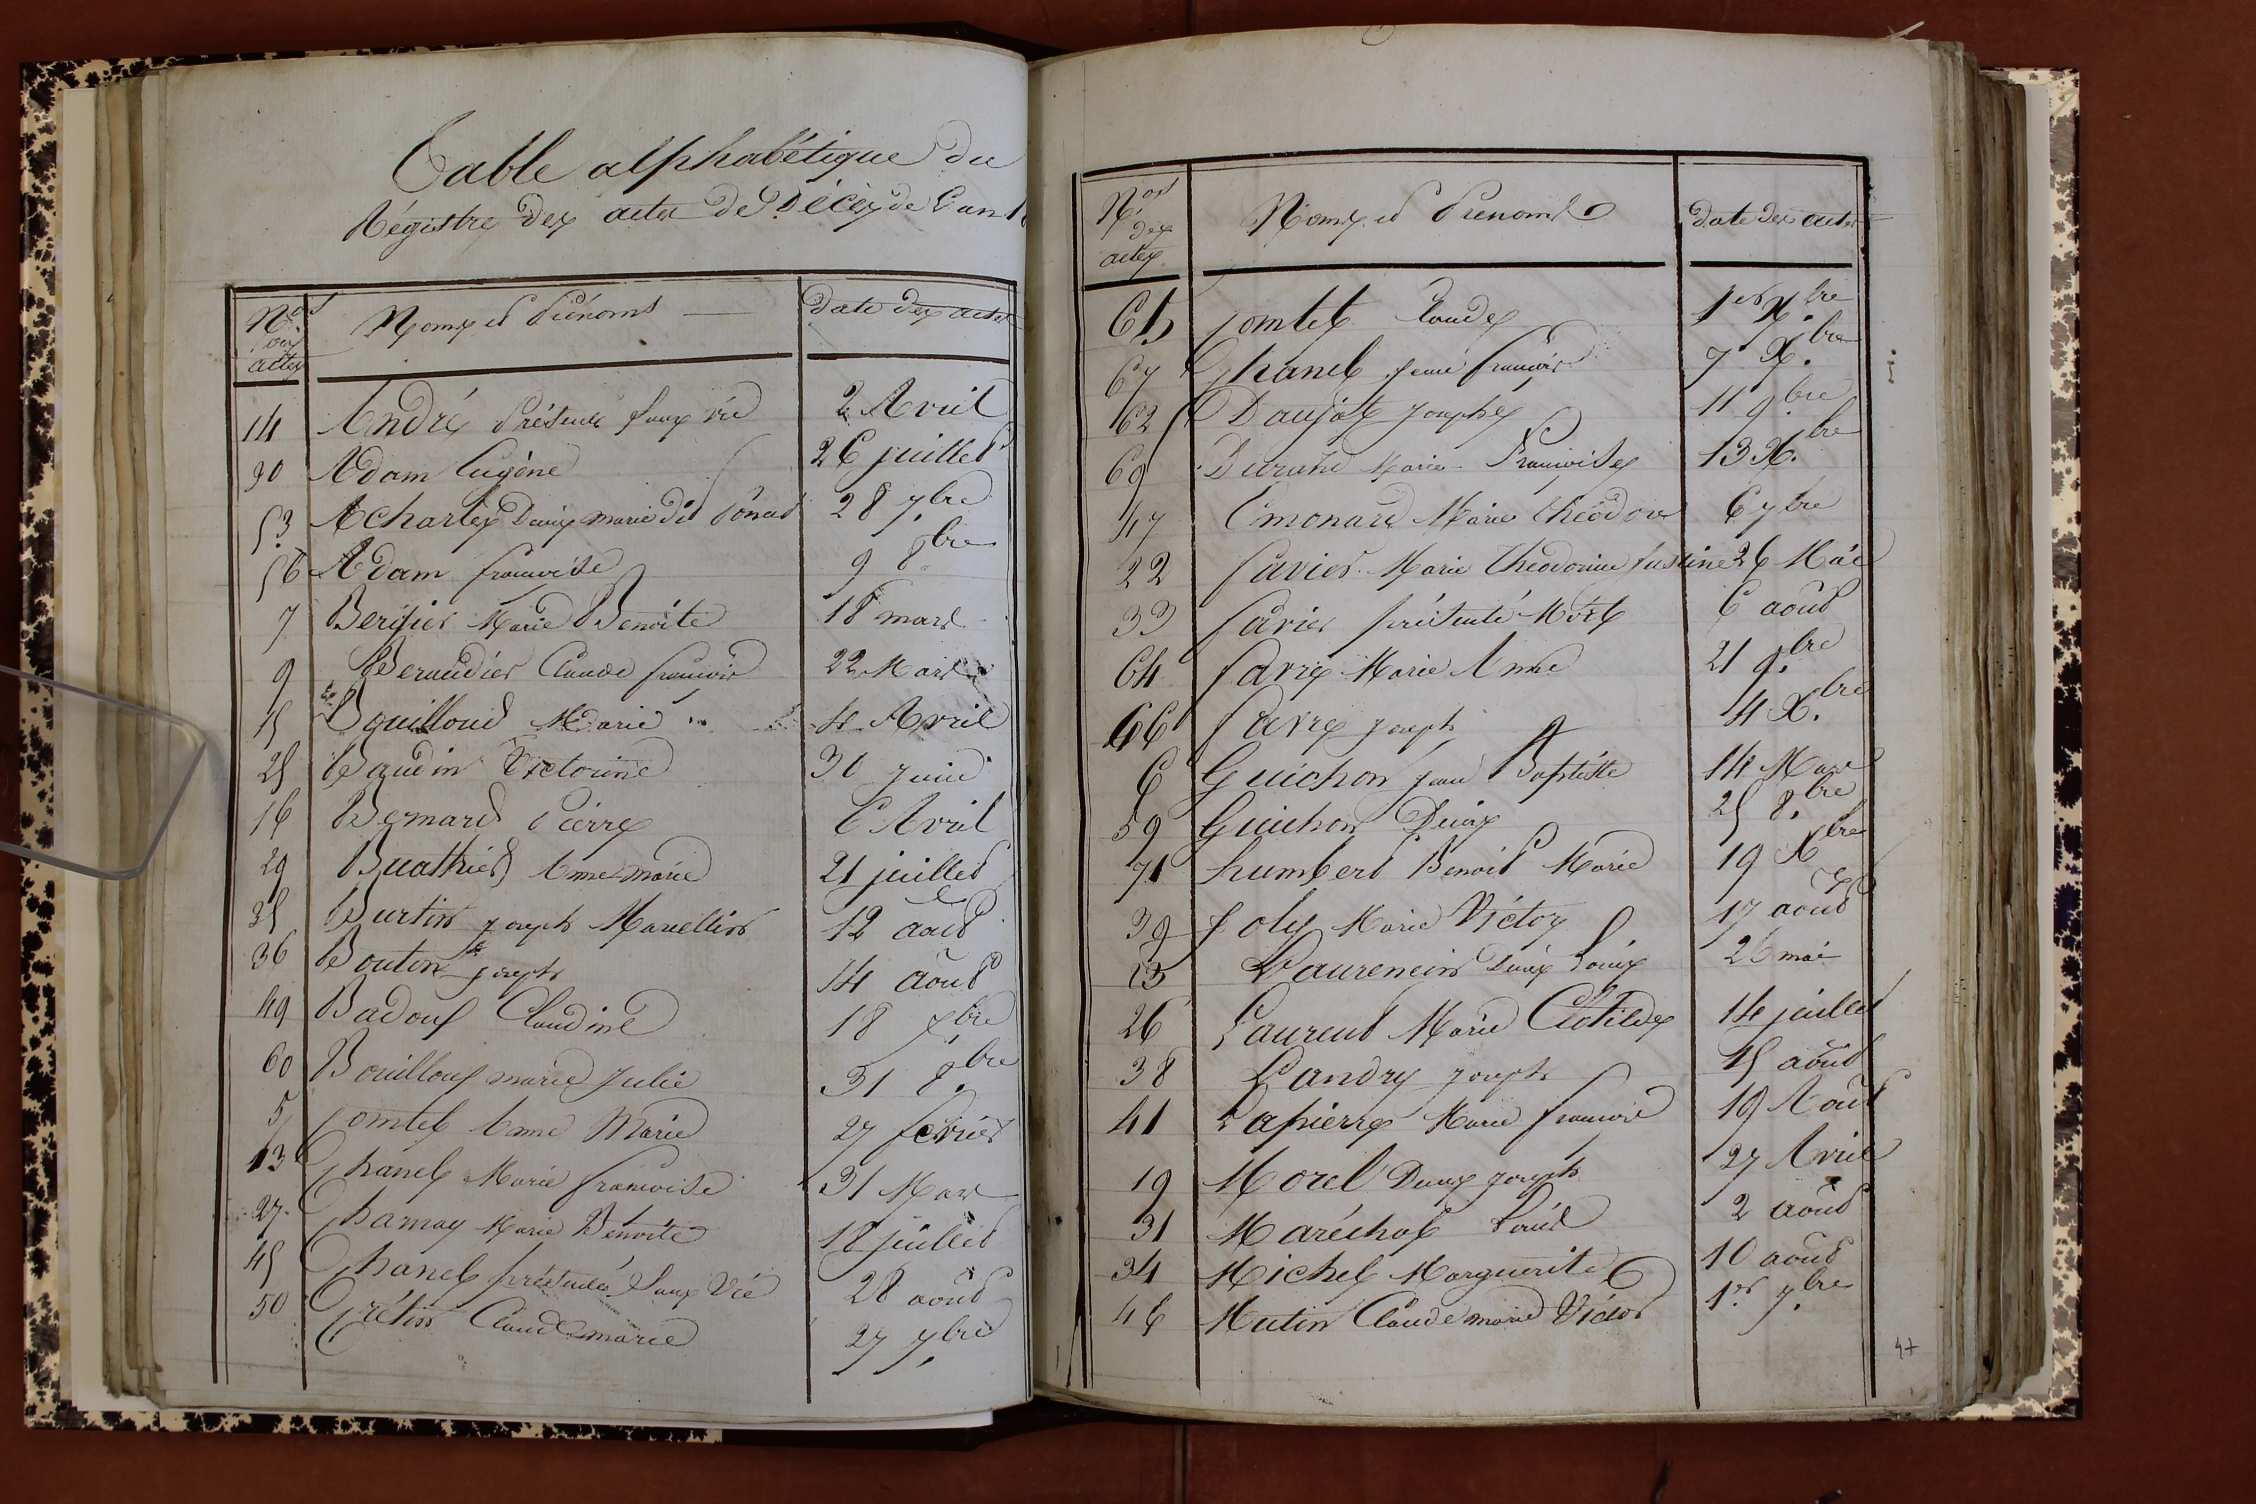 Table alphabétique du
Régistre des actes de Décès de l'an 18
Nos des actes Noms et Prénoms Date des actes
14 André Présenté sans vie 2 Avril
30 Adam Eugène 26 juillet
53 Acharles Denis marie dit 28 7bre
56 Adam françoise 9 8bre
7 Bergier Marie Benoite 18 mars
9 Beraudier Claude françois 22 Mars
15 Bouilloud Marie 4 Avril
25 Baudin Victorine 30 Juin
16 Bernard Pierre 6 Avril
29 Buathier Anne marie 21 juillet
35 Burtin joseph Marcellin 12 août
36 Bouton joseph 14 août
49 Badoux Claudine 18 7bre
60 Bouilloux marie Julie 31 8bre
5 Comtet Anne Marie 27 fevrier
13 Chanel Marie françoise 31 Mars
27 Chamay Marie Benoite 18 juillet
45 Chanel présenté sans Vie 28 août
50 Crétin Claude marie 27 7bre
Nos des actes Noms et Prenoms date des actes
65 Comtet Claude 1er Xbre
67 Chanel françois 7 Xbre
62 Daujat josephe 11 9bre
69 Durand Marie Françoise 13 Xbre
47 Emonard Marie théodore 6 7bre
22 favier Marie Théodorine justine 26 Mai
33 favier présenté Mort 6 août
64 favre Marie Anne 21 9bre
66 favre joseph 4 Xbre
6 Guichon jean Baptiste 14 Mars
59 Guichon Denis 25 8bre
71 humbert Benoit Marie 19 Xbre
39 Joly Marie Victoy 17 août
23 Laurencin Denis Louis 26 mai
26 Laurent Marie Clotilde 14 juillet
38 Landry joseph 15 août
41 Lapierre Marie françoise 19 Août
19 Morel Denis joseph 27 Avril
31 Maréchal Louis 2 août
34 Michel Marguerite 10 août
46 Mutin Claude marie Victor 1er 7bre
47